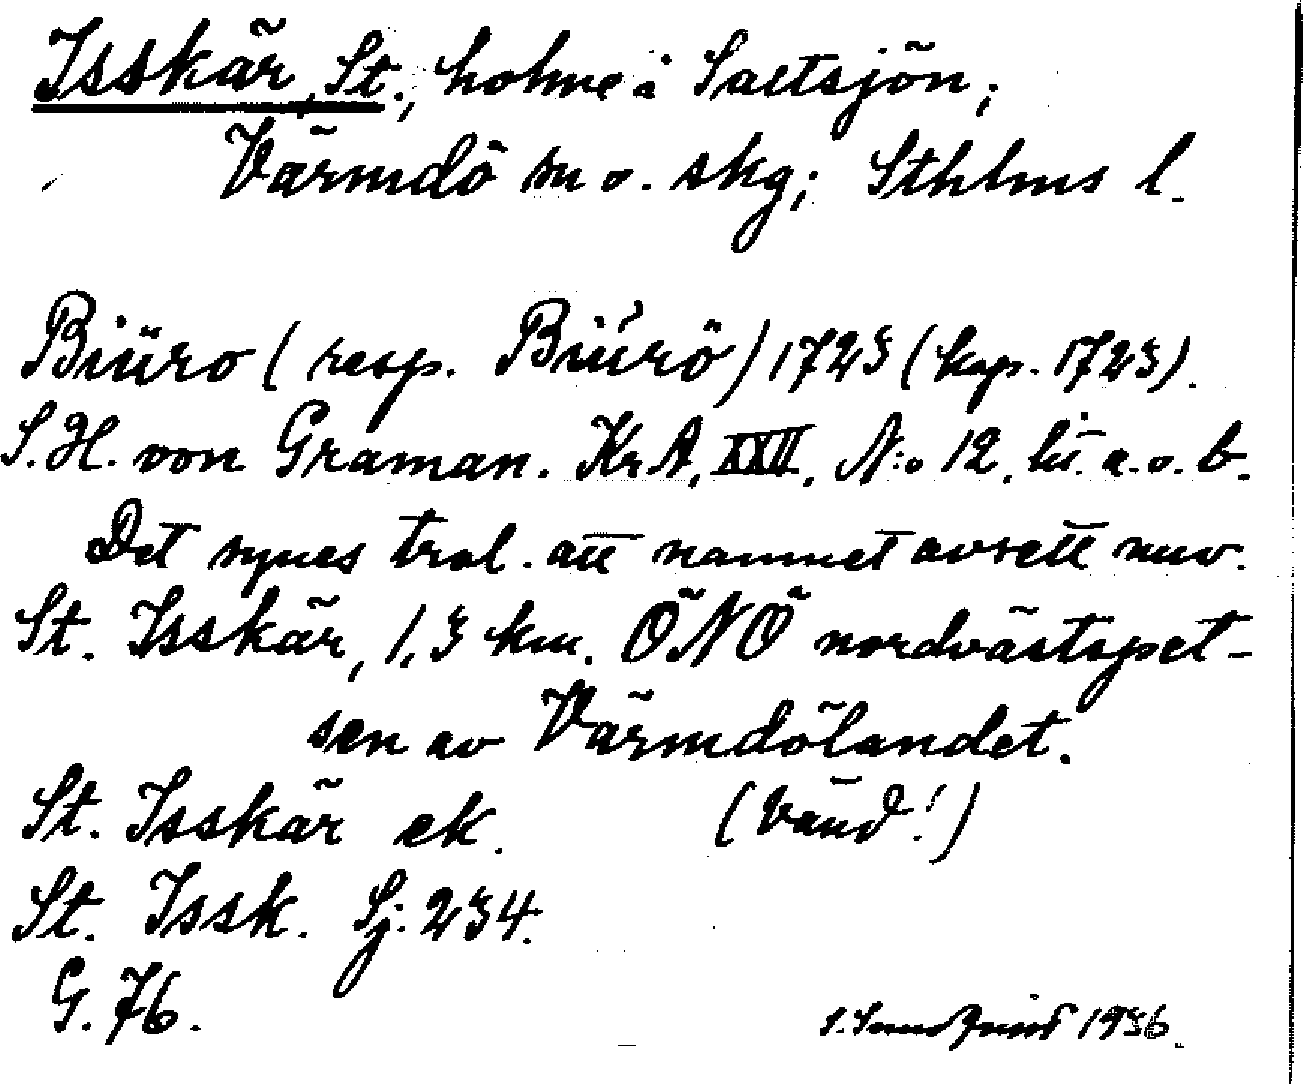 Isskär, St., holme i Saltsjön;
Värmdö sn o. skg; Sthlms l.
Biüro (resp. Biürö) 1723 (kop. 1723).
S.H. von Graman. KrA, XXII. N:o 12. lit. a. o. b.
Det synes trol. att namnet avsett nuv.
St. Isskär, 1,3 km. ÖNÖ nordvästspet-
sen av Värmdölandet.
St. Isskär ek. (Vänd!)
St. Issk. Sj. 234.
G. 76.
1936.